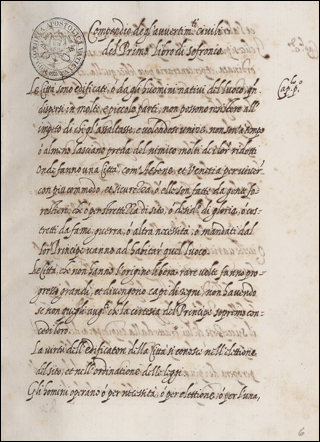 Compendio degli avvertim.ti civili
del Primo Libro di Sofronio.
Le Città sono edificate ò da gli huomini nativi del luoco, qn Cap. p.o
dispersi in molte, e piccole parti, non possono resistere all'
impeto di chi gli assaltasse, e volendosi unire, non sono a tempo
ò almeno lasciano preda del nimico molti de i lor ridotti
Onde fanno una Città com' Athene, et Venetia per viver
con più commodo, et sicurezza, ò elle son fatte da gente fo=
restiera, che ò per strettezza di sito, ò desid.o di gloria, ò cos=
tretti da fame, guerra, ò altra necessità, ò mandati dal
lor Principe vanno ad habitar quel luoco.
Le Città, che non hanno l'origine libera rare volte fanno pro=
gressi grandi, et divengono capi di regni, non havendo
se non quegli aug.ti che la cortesia del Principe supremo con=
cede loro.
La virtù dell'Edificatore della Città si conosce nell'elettione
del sito, et nell'ordinatione delle leggi.
Gli homini operano ò per necessità, ò per elettione, ò per l'una,
6